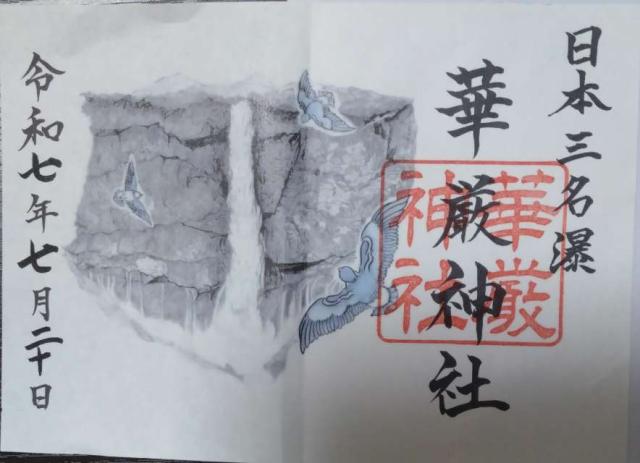 日本三名瀑
華厳神社
華厳
神社
令和七年七月二十日